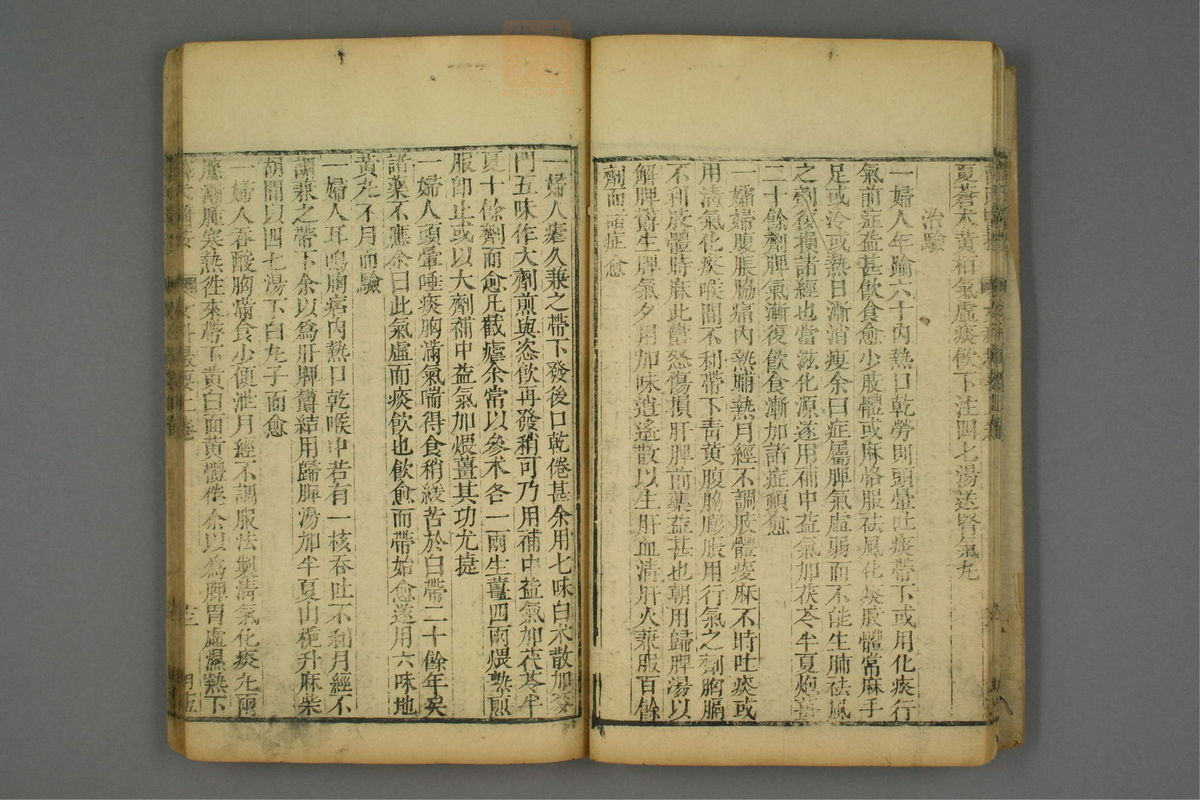 夏蒼朮黃栢氣虛痰飲下注四七湯送腎氣丸
治驗
一婦人年踰六十內熱口乾勞則頭暈吐痰帶下或用化痰行
氣前症益甚飲食愈少肢體或麻恪服祛風化痰肢體常麻手
足或冷或熱日漸消瘦余曰症屬脾氣虛弱而不能生肺祛風
之劑復損諸經也當滋化源遂用補中益氣加茯苓半夏炮薑
二十餘劑脾氣漸復飲食漸加諸症頓愈
一孀婦腹脹脇痛內熱晡熱月經不調肢體痠麻不時吐痰或
用清氣化痰喉間不利帶下青黃腹脇膨脹用行氣之劑胸膈
不利肢體時麻此鬱怒傷損肝脾前藥益甚也朝用歸脾湯以
解脾鬱生脾氣夕用加味逍遙散以生肝血清肝火兼服百餘
劑而諸症愈
一婦人瘧久兼之帶下發後口乾倦甚余用七味白朮散加麥
門五味作大劑煎與恣飲再發稍可乃用補中益氣加茯苓半
夏十餘劑而愈凡截瘧余常以參朮各一兩生薑四兩煨熟煎
服即止或以大劑補中益氣加煨薑其功尤捷
一婦人頭暈唾痰胸滿氣喘得食稍緩苦於白帶二十餘年矣
諸藥不應余曰此氣虛而痰飲也飲愈而帶始愈遂用六味地
黃丸不月而驗
一婦人耳鳴胸痞內熱口乾喉中若有一核吞吐不利月經不
調兼之帶下余以為肝脾鬱結用歸脾湯加半夏山梔升麻柴
胡間以四七湯下白丸子而愈
一婦人吞酸胸滿食少便泄月經不調服法製清氣化痰丸兩
膝漸腫寒熱徃來帶下黃白面黃體倦余以為脾胃虛濕熱下